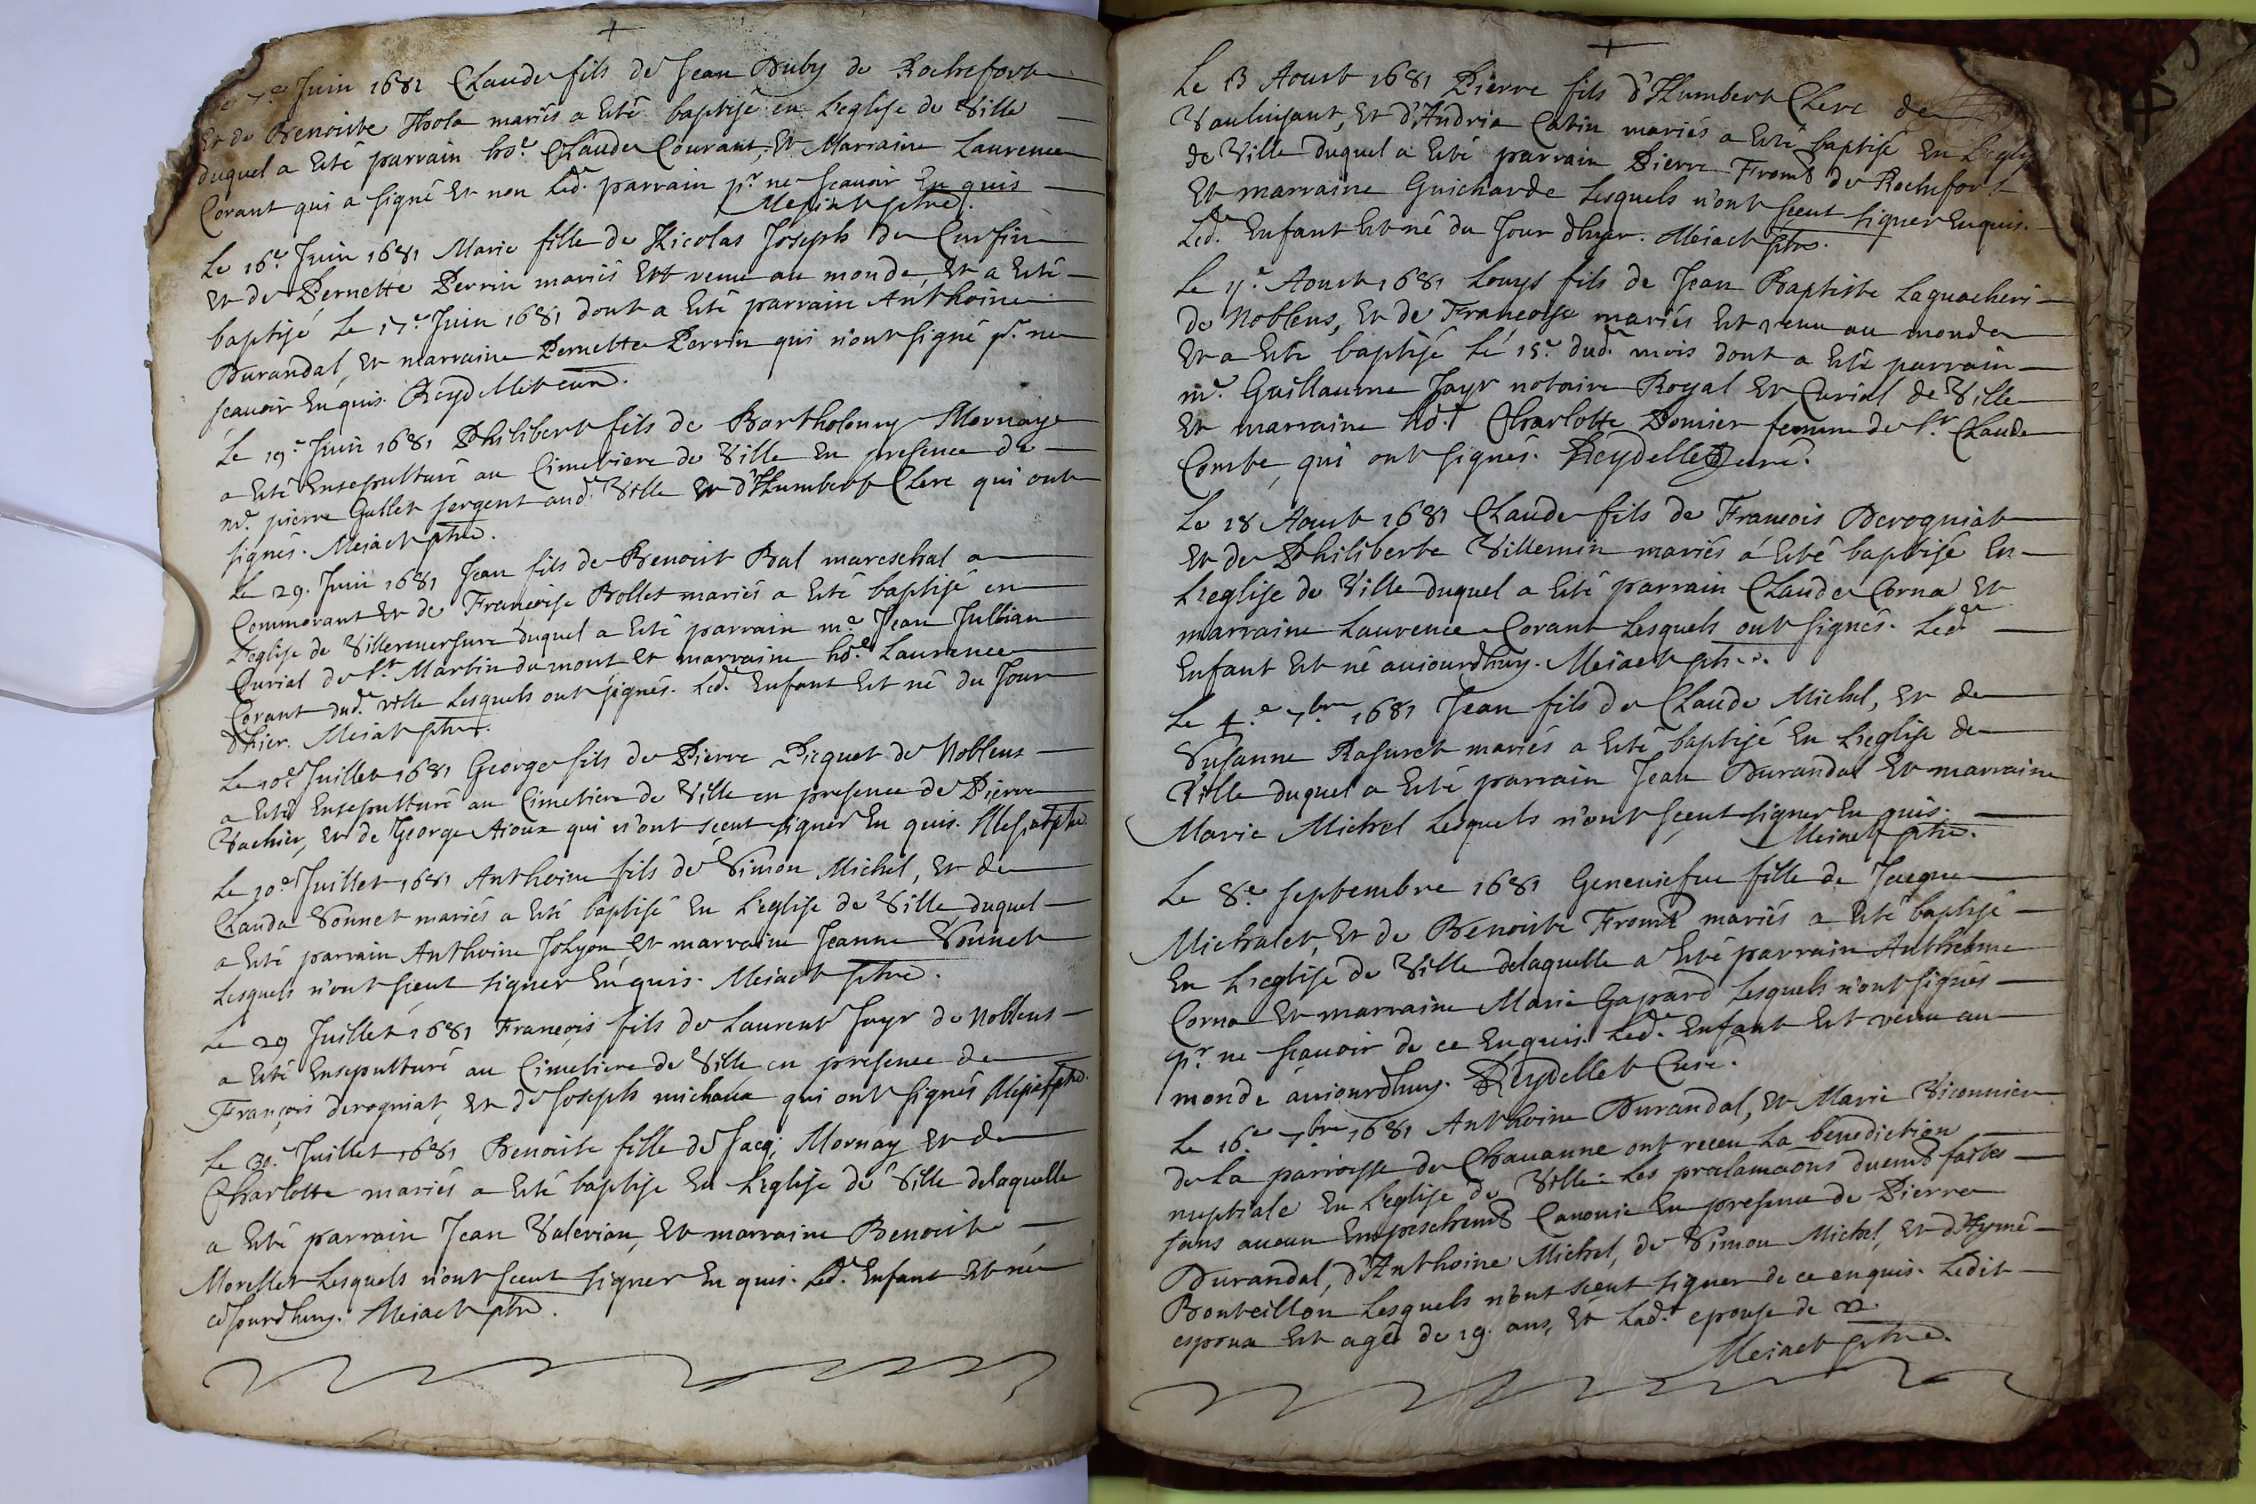 Le 7e Juin 1681 Claude fils de Jean Duby de Rochefort
Et de Benoiste mariés a Esté baptisé en L'eglise de Ville
duquel a Esté parrain hor. Claude Courant, Et Marraine Laurence
Corant qui a signé Et non Led. parrain pr. ne scavoir Enquis
Mejat ptre.
Le 16e Juin 1681 Marie fille de Nicolas Joseph de Cursin
Et de Pernette Perrin mariés Est venue au monde, Et a Esté
baptisé Le 17e Juin 1681 dont a Esté parrain Anthoine
Durandal, Et marraine Pernette Perrin qui n'ont signé pr. ne
scavoir Enquis. Reydellet curé.
Le 19e Juin 1681 Philibert fils de Bartholomy Mornay
a Esté Ensepulturé au Cimetiere de Ville En presence de
me. pierre Gallet sergent aud. Ville Et d'Humbert Clerc qui ont
signés. Mejact ptre.
Le 29. Juin 1681 Jean fils de Benoist Bal mareschal a
Commorant Et de Françoise Bollet mariés a Esté baptisé en
L'eglise de Villereversure duquel a Esté parrain me. Jean Jullian
Curial de St. Martin du mont Et marraine hoe. Laurence
Corant dud. ville Lesquels ont signés. Led. Enfant Est né du Jour
d'hier. Mejat ptre.
Le 10e Juillet 1681 George fils de Pierre Picquet de Noblens
a Esté Ensepulturé au Cimetiere de Ville en presence de Pierre
Vachier, Et de George Aioux qui n'ont sceut signer En quis. Mejat ptre
Le 10e Juillet 1681 Anthoine fils de Simon Michel, Et de
Clauda Vonnet mariés a Esté baptisé En L'eglise de Ville duquel
a Esté parrain Anthoine Jolyon, Et marraine Jeanne Vonnet
Lesquels n'ont sceut signer Enquis. Mejact ptre.
Le 29 Juillet 1681 François fils de Laurent Jayr de Noblens
a Esté Ensepulturé au Cimetiere de Ville en presence de
François derogniat, Et de Joseph michaux qui ont signés Mejat ptre.
Le 30. Juillet 1681 Benoiste fille de Jacq; Mornay Et de
Charlotte mariés a Esté baptisé En L'eglise de Ville delaquelle
a Esté parrain Jean Valerian, Et marraine Benoiste
Morellet Lesquels n'ont sceut signer En quis. Led. Enfant Est né
ce Jourdhuy. Mejact ptre.
Le 13 Aoust 1681 Pierre fils d'Humbert Clerc de
Vaulinjant, Et d'Andria Catin mariés a Esté baptisé En L'eglise
de Ville duquel a Esté parrain Pierre Fromt de Rochefort
Et marraine Guicharde Lesquels n'ont sceut signer Enquis.
Led. Enfant Est né du Jour d'hyer. Mejact ptre.
Le Aoust 1681 Louys fils de Jean Baptiste Laguacheri
de Noblens, Et de Françoise mariés Est venu au monde
Et a Esté baptisé Le 15e dud. mois dont a Esté parrain
me. Guillaume Jayr notaire Royal Et Curial de Ville
Et marraine hoe. Charlotte Domier femme de Sr. Claude
Combe, qui ont signés. Reydellet curé.
Le 18 Aoust 1681 Claude fils de François Derogniat
Et de Philiberte Villemin mariés á Esté baptisé En
L'eglise de Ville duquel a Esté parrain Claude Corna Et
marraine Laurence Corant Lesquels ont signés. Led.
Enfant Est né aujourdhuy. Mejact ptre.
Le 4e 7bre 1681 Jean fils de Claude Michel, Et de
Susanne Rasuret mariés a Esté baptisé En L'eglise de
Ville duquel a Esté parrain Jean Durandal Et marraine
Marie Michel Lesquels n'ont sceut signer En quis.
Mejact ptre.
Le 8e septembre 1681 Geneviefve fille de Jacque
Michalet, Et de Benoiste Fromt mariés a Esté baptisé
En L'eglise de Ville delaquelle a Esté parrain Anthelme
Corna Et marraine Marie Gapard Lesquels n'ont signés
pr. ne scavoir de ce Enquis. Led. Enfant Est venu au
monde aujourdhuy. Reydellet Curé.
Le 16e 7bre 1681 Anthoine Durandal, Et Marie Viconnier
de La parroisse de Chavanne ont receu La benediction
nuptiale En L'eglise de Ville. Les proclamaons duemt faites
sans aucun Empeschemt Canonic En presence de Pierre
Durandal, d'Anthoine Michel, de Simon Michel, Et d'Aymé
Bouveillon Lesquels n'ont sceut signer de ce enquis. Ledit
espoux Est agé de 19. ans, Et Lad. epouse de 22.
Mejact ptre.